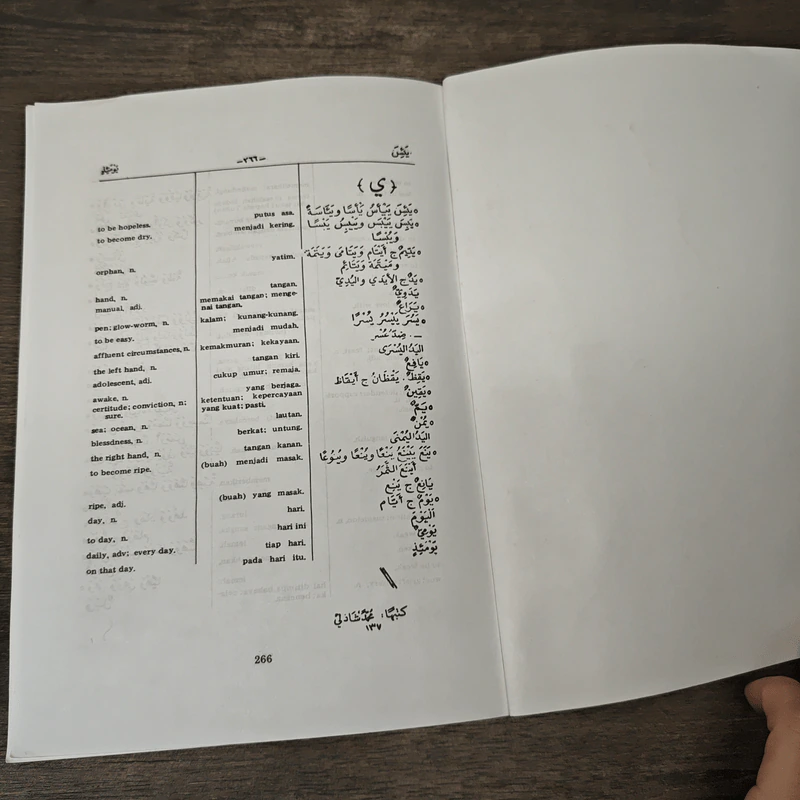 يَئِسَ —٢٦٦— يَوْمَئِذٍ
﴿ ي ﴾
to be hopeless. putus asa. يَئِسَ يَيْأَسُ يَأْسًا ويَئَاسَةً
to become dry. menjadi kering. يَبِسَ يَيْبَسُ ويَيْبِسُ يَبْسًا
وَيُبْسًا
orphan, n. yatim. يَتِيْمٌ ج أَيْتَام وَيَتَامَى وَيَتَمَة
وَمَيْتَمَة وَيَتَائِم
hand, n. tangan. يَدٌ ج الأَيْدِي واليُدِيّ
manual, adj. memakai tangan; menge- يَدَوِيٌّ
nai tangan.
pen; glow-worm, n. kalam; kunang-kunang. يَرَاعٌ
to be easy. menjadi mudah. يَسُرَ يَيْسُرُ يُسْرًا
affluent circumstances, n. kemakmuran; kekayaan. — ضِدّ عُسْر
the left hand, n. tangan kiri. اليَدُ اليُسْرَى
adolescent, adj. cukup umur; remaja. يَافِعٌ
awake, n. yang berjaga. يَقِظٌ. يَقْظَانُ ج أَيْقَاظ
certitude; conviction, n; ketentuan; kepercayaan يَقِيْنٌ
sure. yang kuat; pasti.
sea; ocean, n. lautan. يَمٌّ
blessdness, n. berkat; untung. يُمْنٌ
the right hand, n. tangan kanan. اليَدُ اليُمْنَى
to become ripe. (buah) menjadi masak. يَنَعَ يَيْنَعُ يَنْعًا ويُنْعًا ويُنُوْعًا
أَيْنَعَ الثَّمَرُ
ripe, adj. (buah) yang masak. يَانِعٌ ج يَنْع
day, n. hari. يَوْمٌ ج أَيَّام
to day, n. hari ini اَلْيَوْمَ
daily, adv; every day. tiap hari. يَوْمِيٌّ
on that day. pada hari itu. يَوْمَئِذٍ
كتبها: محمد شاذلي
١٣٧
266